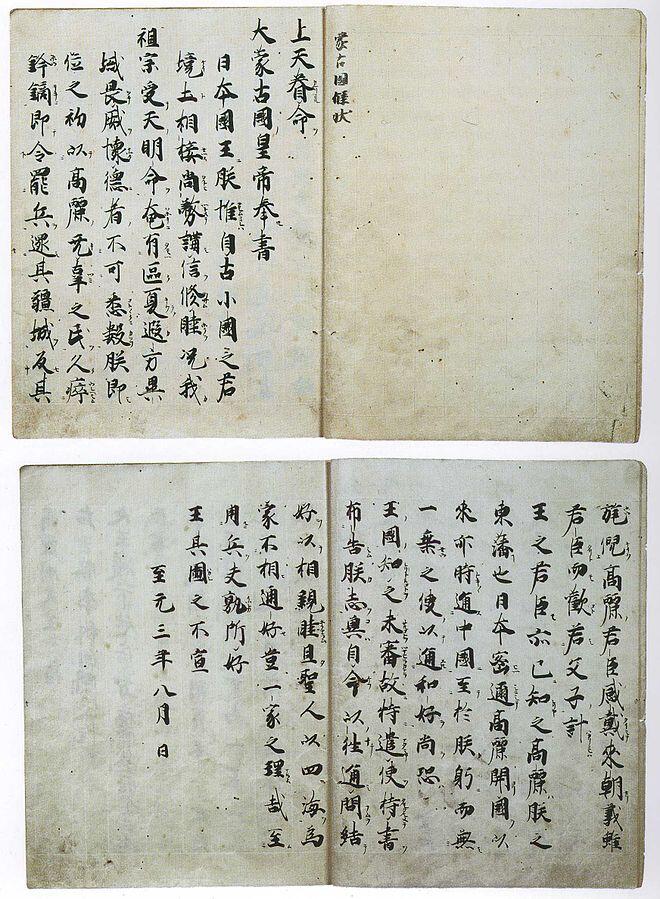 蒙古國牒状
上天眷命
大蒙古國皇帝奉書
日本國王朕惟自古小國之君
境土相接尚務講信修睦況我
祖宗受天明命奄有區夏遐方異
域畏威懷德者不可悉數朕即
位之初以高麗无辜之民久瘁
鋒鏑即令罷兵還其疆域反其
旄倪高麗君臣感戴來朝義雖
君臣而歡若父子計
王之君臣亦已知之高麗朕之
東藩也日本密迩高麗開國以
來亦時通中國至於朕躬而無
一乗之使以通和好尚恐
王國知之未審故特遣使持書
布告朕志冀自今以往通問結
好以相親睦且聖人以四海為
家不相通好豈一家之理哉至
用兵夫孰所好
王其圖之不宣
至元三年八月 日